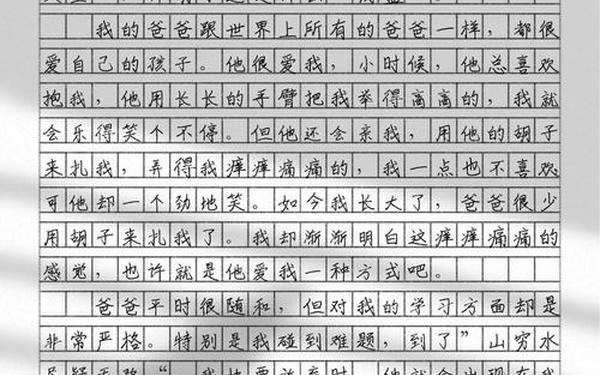 我的爸爸跟世界上所有的爸爸一样，都很
爱自己的孩子。他很爱我，小时候，他总喜欢
抱我，他用长长的手臂把我举得高高的，我就
会乐得笑个不停。但他还会亲我，用他的胡子
来扎我，弄得我痒痒痛痛的，我一点也不喜欢
可他却一个劲地笑。如今我长大了，爸爸很少
用胡子来扎我了。我却渐渐明白这痒痒痛痛的
感觉，也许就是他爱我一种方式吧。
爸爸平时很随和，但对我的学习方面却是
非常严格。特别是我碰到难题，到了”山穷水